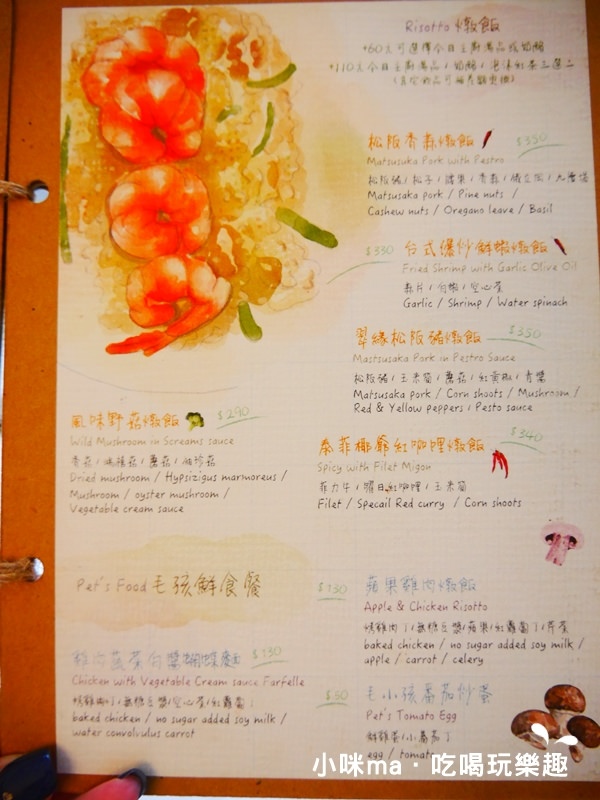 Risotto 燉飯
+60元可選擇今日主廚濃湯或奶酪
+110元今日主廚濃湯/奶酪/
松阪青森燉飯 $350
Matsusaka Pork with Pestro
松阪豬/松子/腰果/青森/
Matsusaka pork / Pine nuts /
Cashew nuts / Oregano leave / Basil
$330 台式爆炒鮮蝦燉飯
Fried Shrimp with Garlic Olive Oil
蒜片/白蝦/空心菜
Garlic / Shrimp / Water spinach
翠緣松阪豬燉飯 $350
Mastsusaka Pork in Pestro Sauce
松阪豬/玉米筍/蘑菇/紅黃椒/青醬
Matsusaka pork / Corn shoots / Mushroom /
Red & Yellow peppers / Pesto sauce
風味野菇燉飯 $290
Wild Mushroom in Screams sauce
香菇/鴻禧菇/蘑菇/袖珍菇
Dried mushroom / Hypsizigus marmoreus /
Mushroom / oyster mushroom /
Vegetable cream sauce
泰菲椰爺紅咖哩燉飯 $340
Spicy with Filet Migon
菲力牛/曜日紅咖哩/玉米筍
Filet / Specail Red curry / Corn shoots
Pet's Food 毛孩鮮食餐
$130 蘋果雞肉燉飯
Apple & Chicken Risotto
烤雞肉丁/無糖豆漿/蘋果/紅蘿蔔丁/芹菜
baked chicken / no sugar added soy milk /
apple / carrot / celery
雞肉蔬菜白醬蝴蝶麵 $130
Chicken with Vegetable Cream sauce Farfelle
烤雞肉丁/無糖豆漿/空心菜/紅蘿蔔丁
baked chicken / no sugar added soy milk /
water convolvulus carrot
$50 毛小孩蕃茄炒蛋
Pet's Tomato Egg
鮮雞蛋/小蕃茄丁
egg / tomato
小咪ma·吃喝玩樂趣